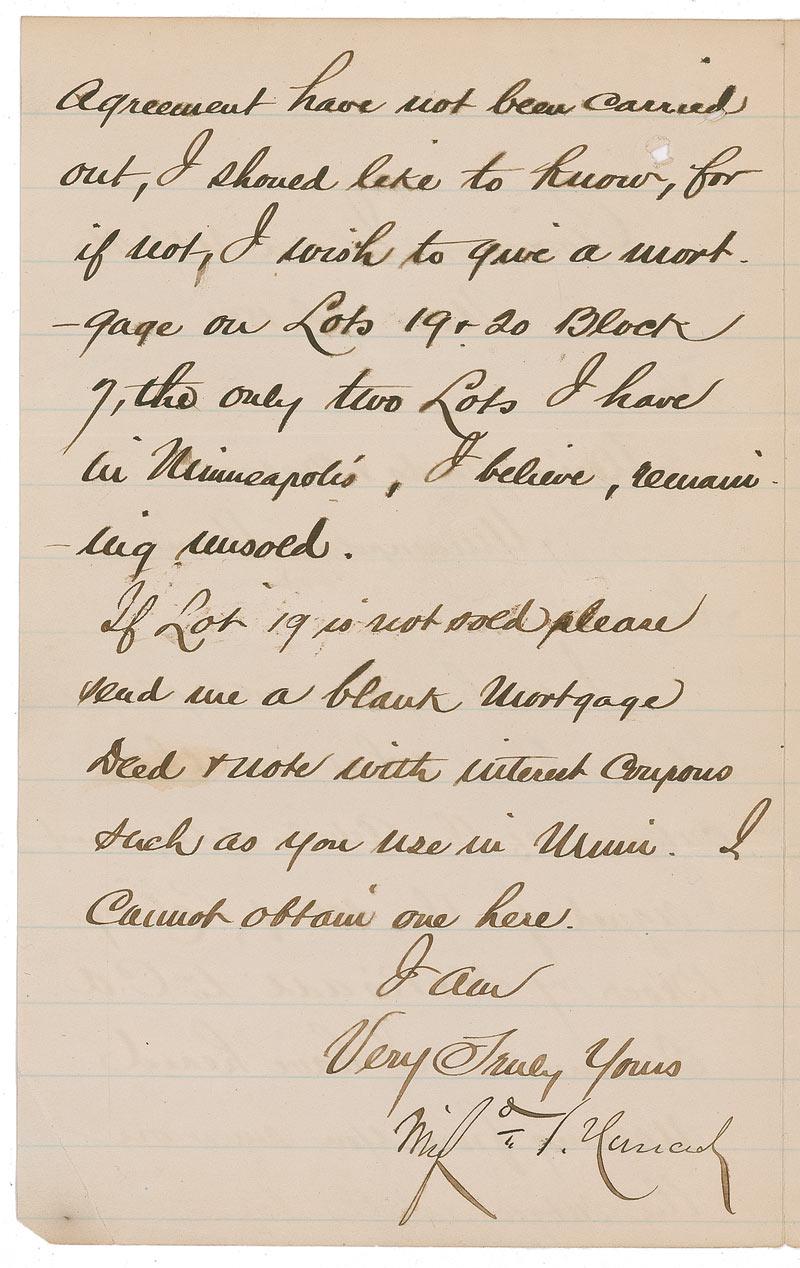 Agreement have not been carried
out, I should like to know, for
if not, I wish to give a mort-
-gage on Lots 19 & 20 Block
7, the only two Lots I have
in Minneapolis, I believe, remain-
-ing unsold.
If Lot 19 is not sold please
send me a blank Mortgage
Deed & note with interest Coupons
such as you use in Minn. I
Cannot obtain one here.
I am
Very Truly Yours